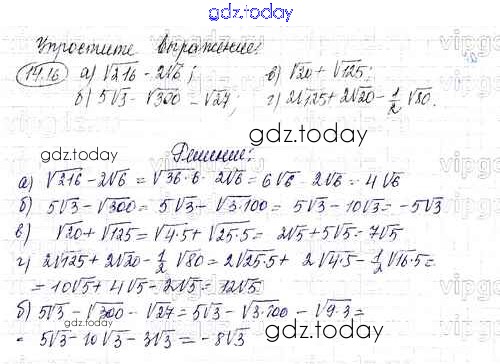 gdz.today
Упростите выражение:
14.16 а) √216 - 2√6; в) √20 + √125;
б) 5√3 - √300 - √27; г) 2√125 + 2√20 - 1/2 √80.
gdz.today
gdz.today
Решение:
а) √216 - 2√6 = √36·6 - 2√6 = 6√6 - 2√6 = 4√6
б) 5√3 - √300 = 5√3 + √3·100 = 5√3 - 10√3 = -5√3
в) √20 + √125 = √4·5 + √25·5 = 2√5 + 5√5 = 7√5
г) 2√125 + 2√20 - 1/2 √80 = 2√25·5 + 2√4·5 - 1/2 √16·5 =
= 10√5 + 4√5 - 2√5 = 12√5
б) 5√3 - √300 - √27 = 5√3 - √3·100 - √9·3 =
= 5√3 - 10√3 - 3√3 = -8√3
gdz.today
gdz.today